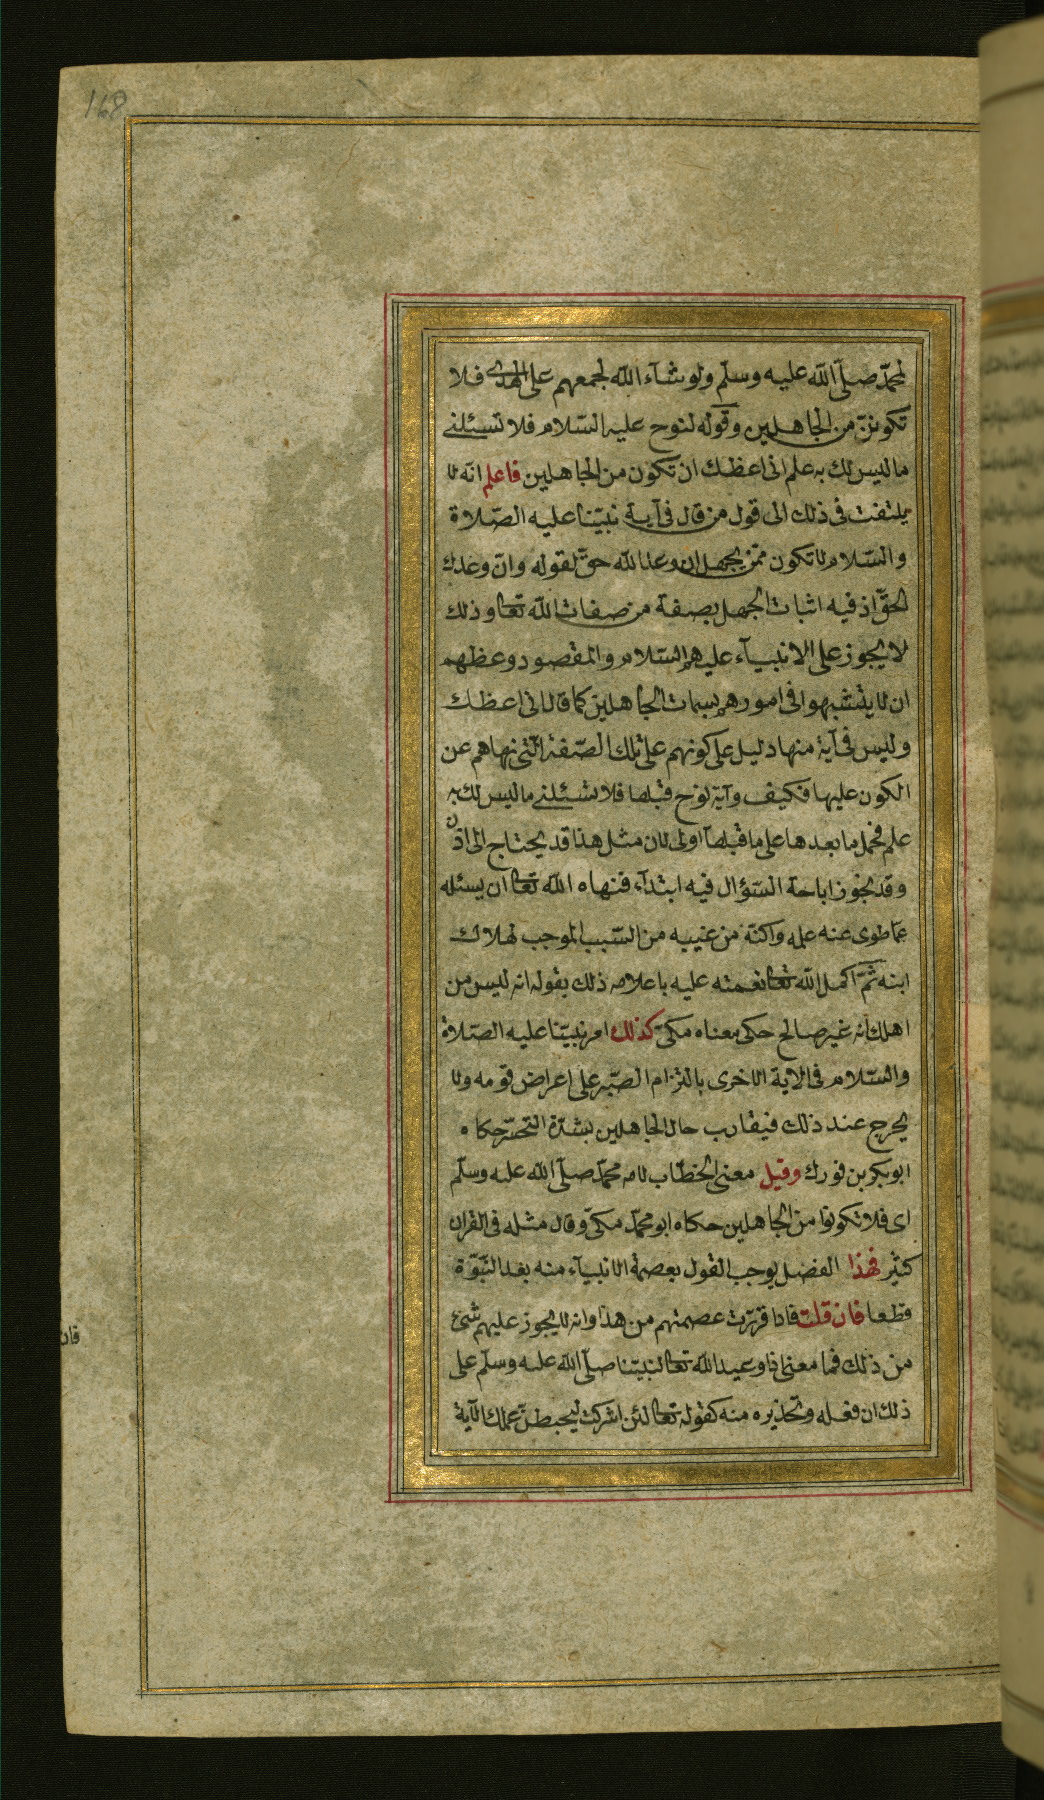 168
لمحمّد صلّى الله عليه وسلّم ولو شآء الله لجمعهم على الهدى فلا
تكوننّ من الجاهلين وقوله لنوح عليه السّلام فلا تسئلنى
ما ليس لك به علم انى اعظك ان تكون من الجاهلين فاعلم انه لا
يلتفت فى ذلك الى قول من قال فى آية نبيّنا عليه الصّلاة
والسّلام لا تكون ممّن يجهل ان وعد الله حقّ لقوله وانّ وعدك
الحقّ اذ فيه اثبات الجهل بصفة من صفات الله تعا وذلك
لا يجوز على الانبيآء عليهم السّلام والمقصود وعظهم
ان لا يتشبهوا فى امورهم بسمات الجاهلين كما قال انى اعظك
وليس فى آية منها دليل على كونهم على تلك الصّفة الّتى نهاهم عن
الكون عليها فكيف وآية نوح قبلها فلا تسئلنى ما ليس لك به
علم فحمل ما بعدها على ما قبلها اولى لان مثل هذا قد يحتاج الى اذن
وقد يجوز اباحة السّؤال فيه ابتدآء فنهاه الله تعا ان يسئله
عمّا طوى عنه علمه واكنّه من غيبه من السّبب الموجب لهلاك
ابنه ثمّ اكمل الله تعا نعمته عليه باعلامه ذلك بقوله انه ليس من
اهلك انه غير صالح حكى معناه مكىّ كذلك امر نبيّنا عليه الصّلاة
والسّلام فى الاية الاخرى بالتزام الصّبر على اعراض قومه ولا
يحرج عند ذلك فيقارب حال الجاهلين بشدّة التحسّر حكاه
ابو بكر بن فورك وقيل معنى الخطاب لامه محمّد صلّى الله عليه وسلّم
اى فلا تكونوا من الجاهلين حكاه ابو محمّد مكىّ وقال مثله فى القران
كثير فهذا الفضل يوجب القول بعصمة الانبيآء منه بعد النّبوّة
قطعا فان قلت فاذا قرّرت عصمتهم من هذا وانه لا يجوز عليهم شئ
من ذلك فما معنى اذا وعيد الله تعا لنبيّنا صلّى الله عليه وسلّم على
ذلك ان فعله وتحذيره منه كقوله تعا لئن اشركت ليحبطنّ عملك الآية
فان